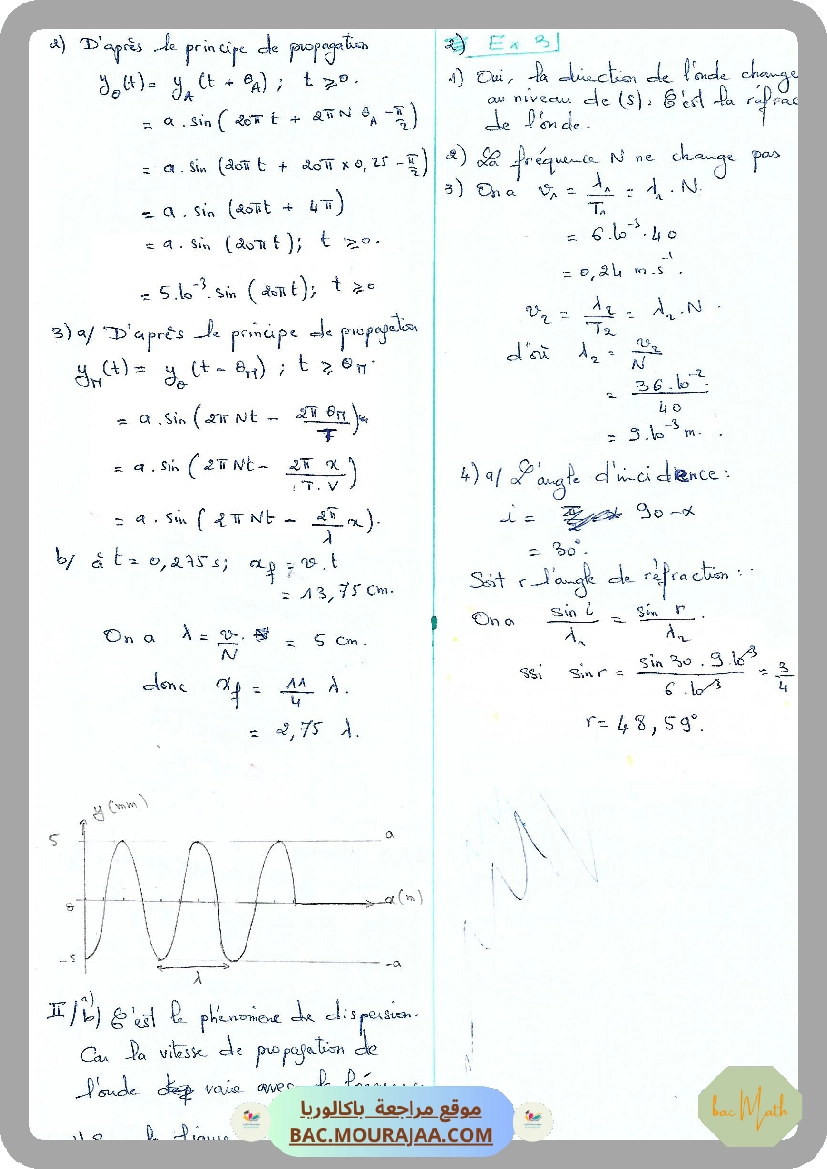 2) D'après le principe de propagation
y_O(t) = y_A (t + θ_A) ; t ≥ 0.
= a . sin ( 20π t + 2π N θ_A - π/2)
= a . sin (20π t + 20π × 0,25 - π/2)
= a . sin (20πt + 4π)
= a . sin (20πt) ; t ≥ 0.
= 5.10⁻³ . sin (20πt) ; t ≥ 0
3) a/ D'après le principe de propagation
y_M(t) = y_O (t - θ_M) ; t ≥ θ_M.
= a . sin (2π Nt - 2π θ_M / T)
= a . sin (2π Nt - 2π x / T . V)
= a . sin ( 2π Nt - 2π/λ x).
b/ à t = 0,275 s ; x_f = v . t
= 13,75 cm.
On a λ = v/N = 5 cm.
donc x_f = 11/4 λ.
= 2,75 λ.
y (mm)
5
a
0
x (m)
-5
-a
λ
II/ a) b) C'est le phénomène de dispersion.
Car la vitesse de propagation de
l'onde varie avec la
2) Ex 3
1) Oui, la direction de l'onde change
au niveau de (S). C'est la réfrac
de l'onde.
2) La fréquence N ne change pas
3) On a v₁ = λ₁/T₁ = λ₁ . N.
= 6.10⁻³ . 40
= 0,24 m.s⁻¹.
v₂ = λ₂/T₂ = λ₂ . N.
d'où λ₂ = v₂/N
= 36.10⁻²/40
= 9.10⁻³ m.
4) a/ L'angle d'incidence :
i = 90 - α
= 30°.
Soit r l'angle de réfraction :
On a sin i / λ₁ = sin r / λ₂.
ssi sin r = sin 30 . 9.10⁻³ / 6.10⁻³ = 3/4
r = 48,59°.
موقع مراجعة باكالوريا
BAC.MOURAJAA.COM
bac Math